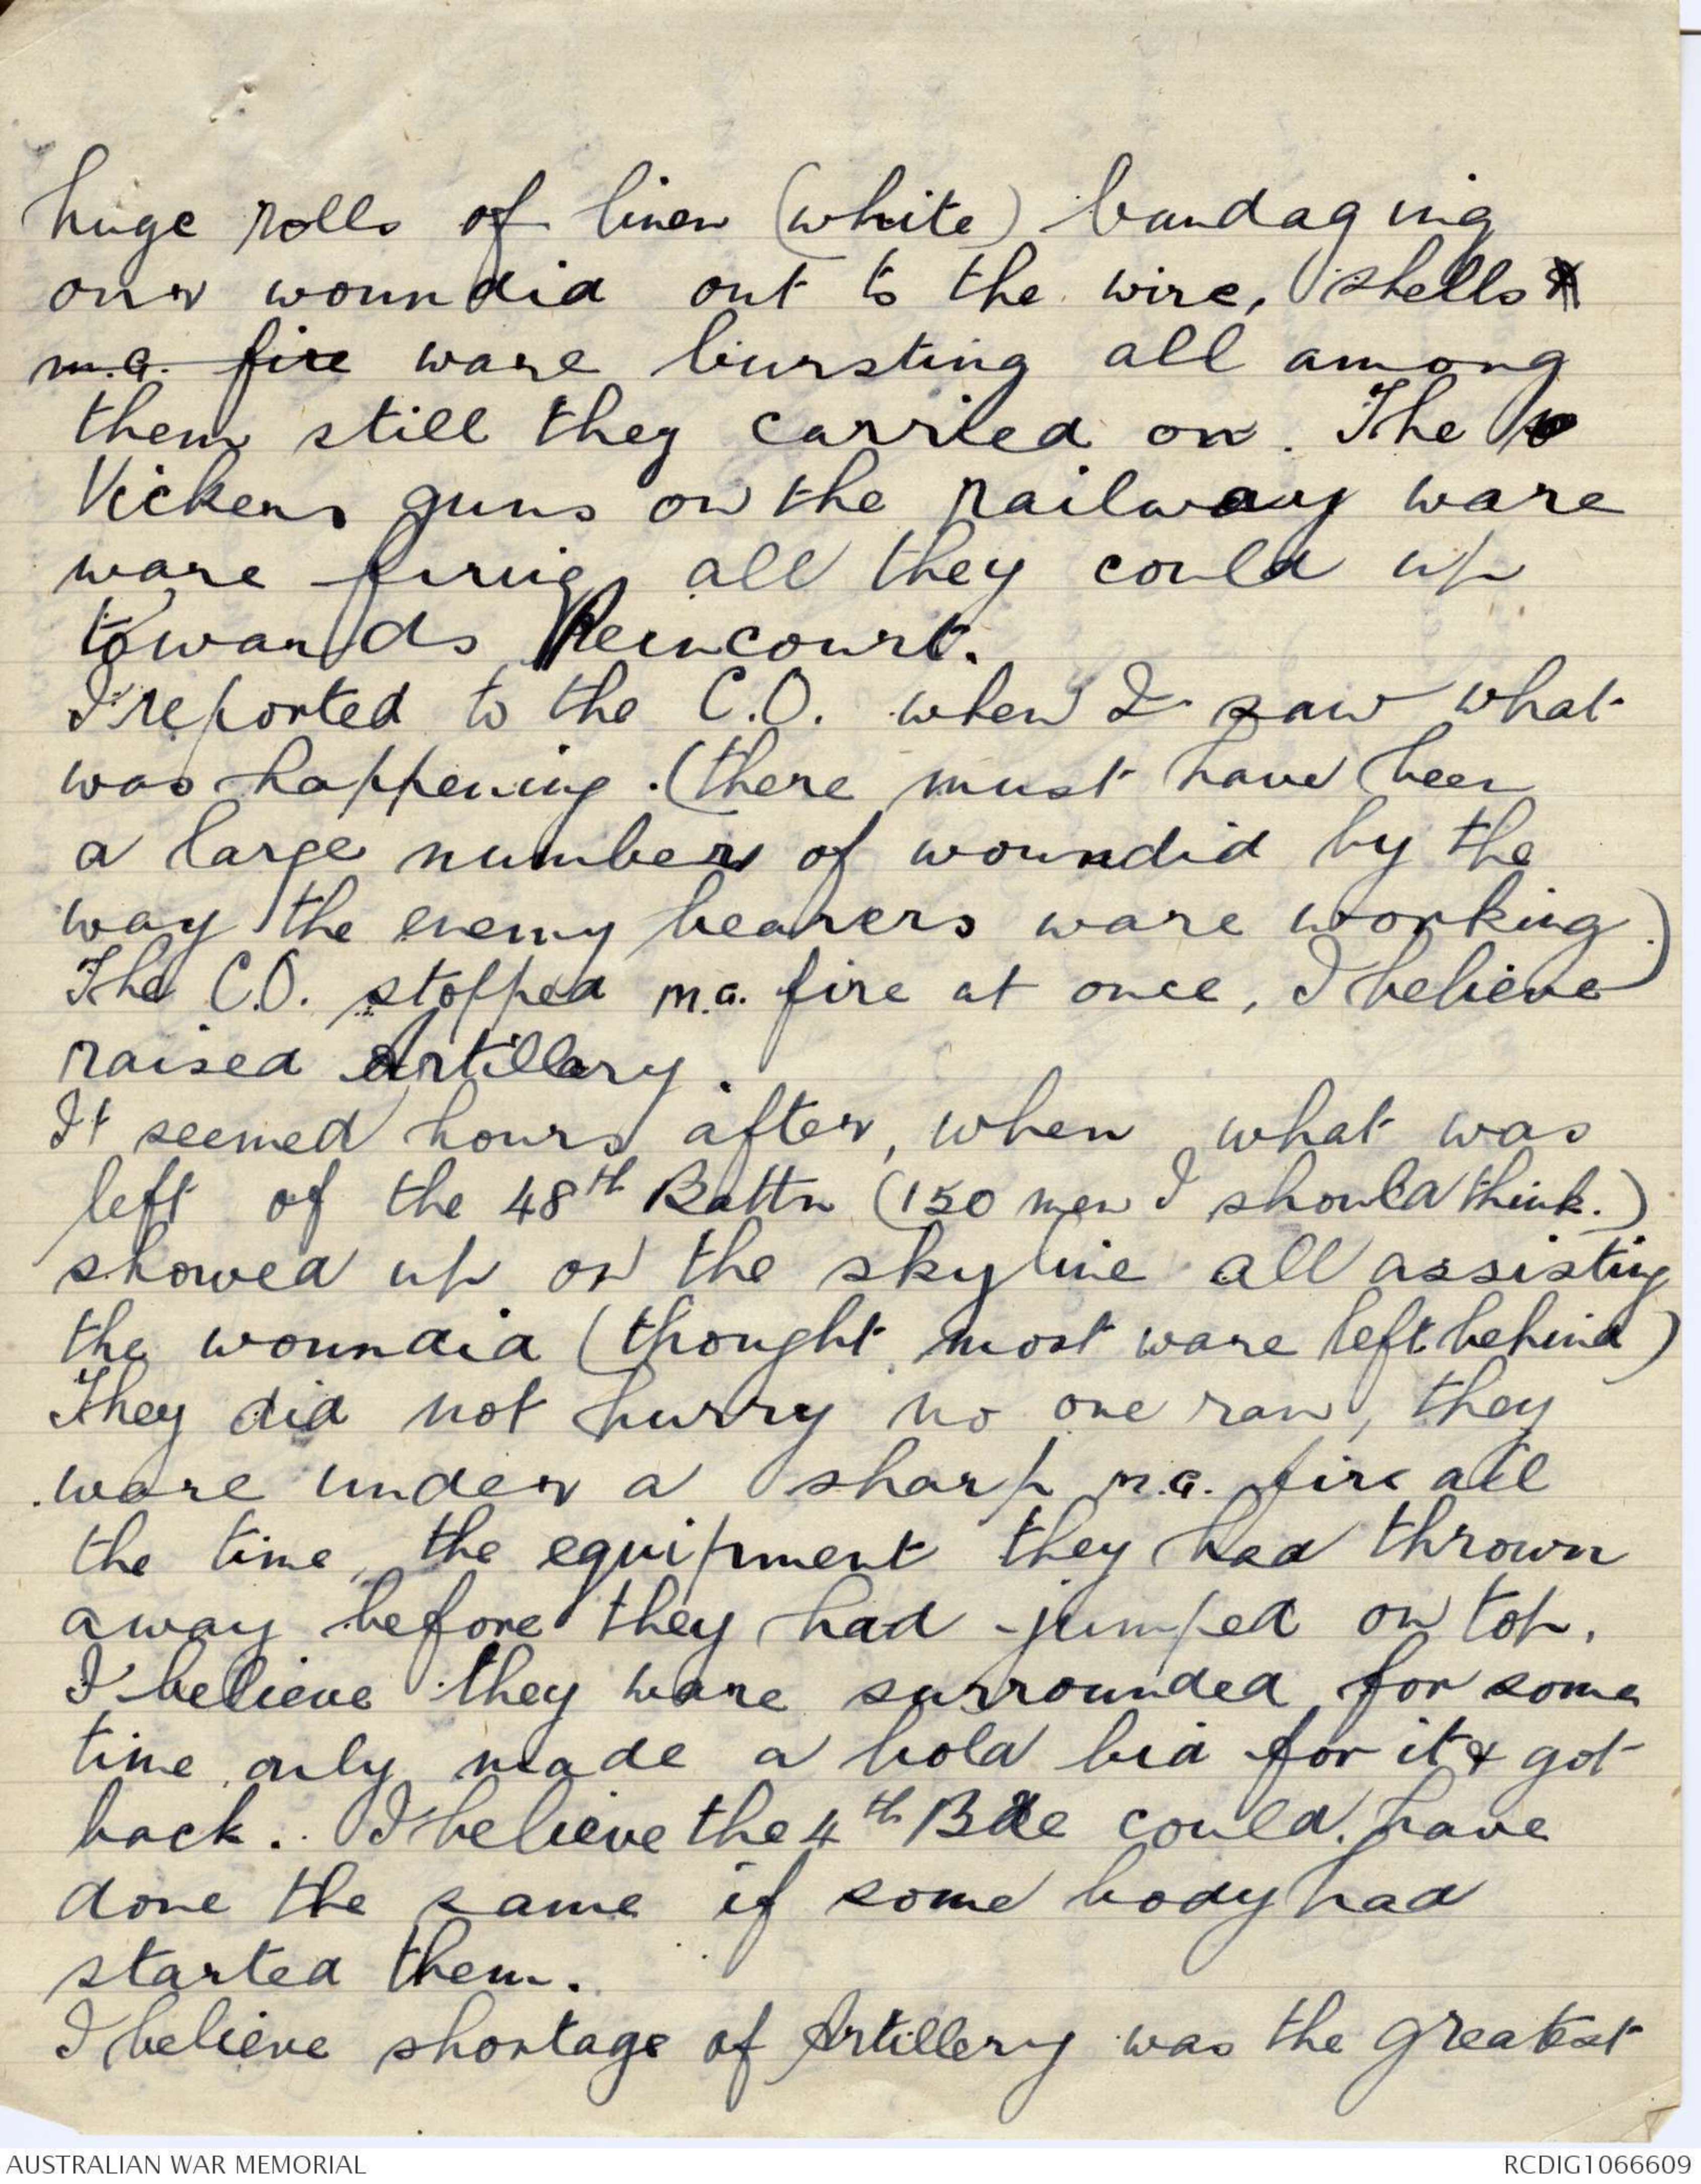 huge rolls of linen (white) bandaging
our woundid out to the wire, shells &
m.g. fire ware bursting all among
them still they carried on. The
Vickers guns on the railway ware
ware firing all they could up
towards Reincourt.
I reported to the C.O. when I saw what
was happening. (there must have been
a large numbers of woundid by the
way the enemy bearers ware working.)
The C.O. stopped m.g. fire at once, I believe
raised Artillary.
It seemed hours after, when what was
left of the 48th Battn (150 men I should think.)
showed up on the skyline all assisting
the woundid (thought most ware left behind)
They did not hurry no one ran, they
ware under a sharp m.g. fire all
the time, the equipment they had thrown
away before they had jumped on top.
I believe they ware surrounded for some
time only made a bold bid for it & got
back. I believe the 4th Bde could have
done the same if some body had
started them.
I believe shortage of Artillery was the greatest
AUSTRALIAN WAR MEMORIAL
RCDIG1066609